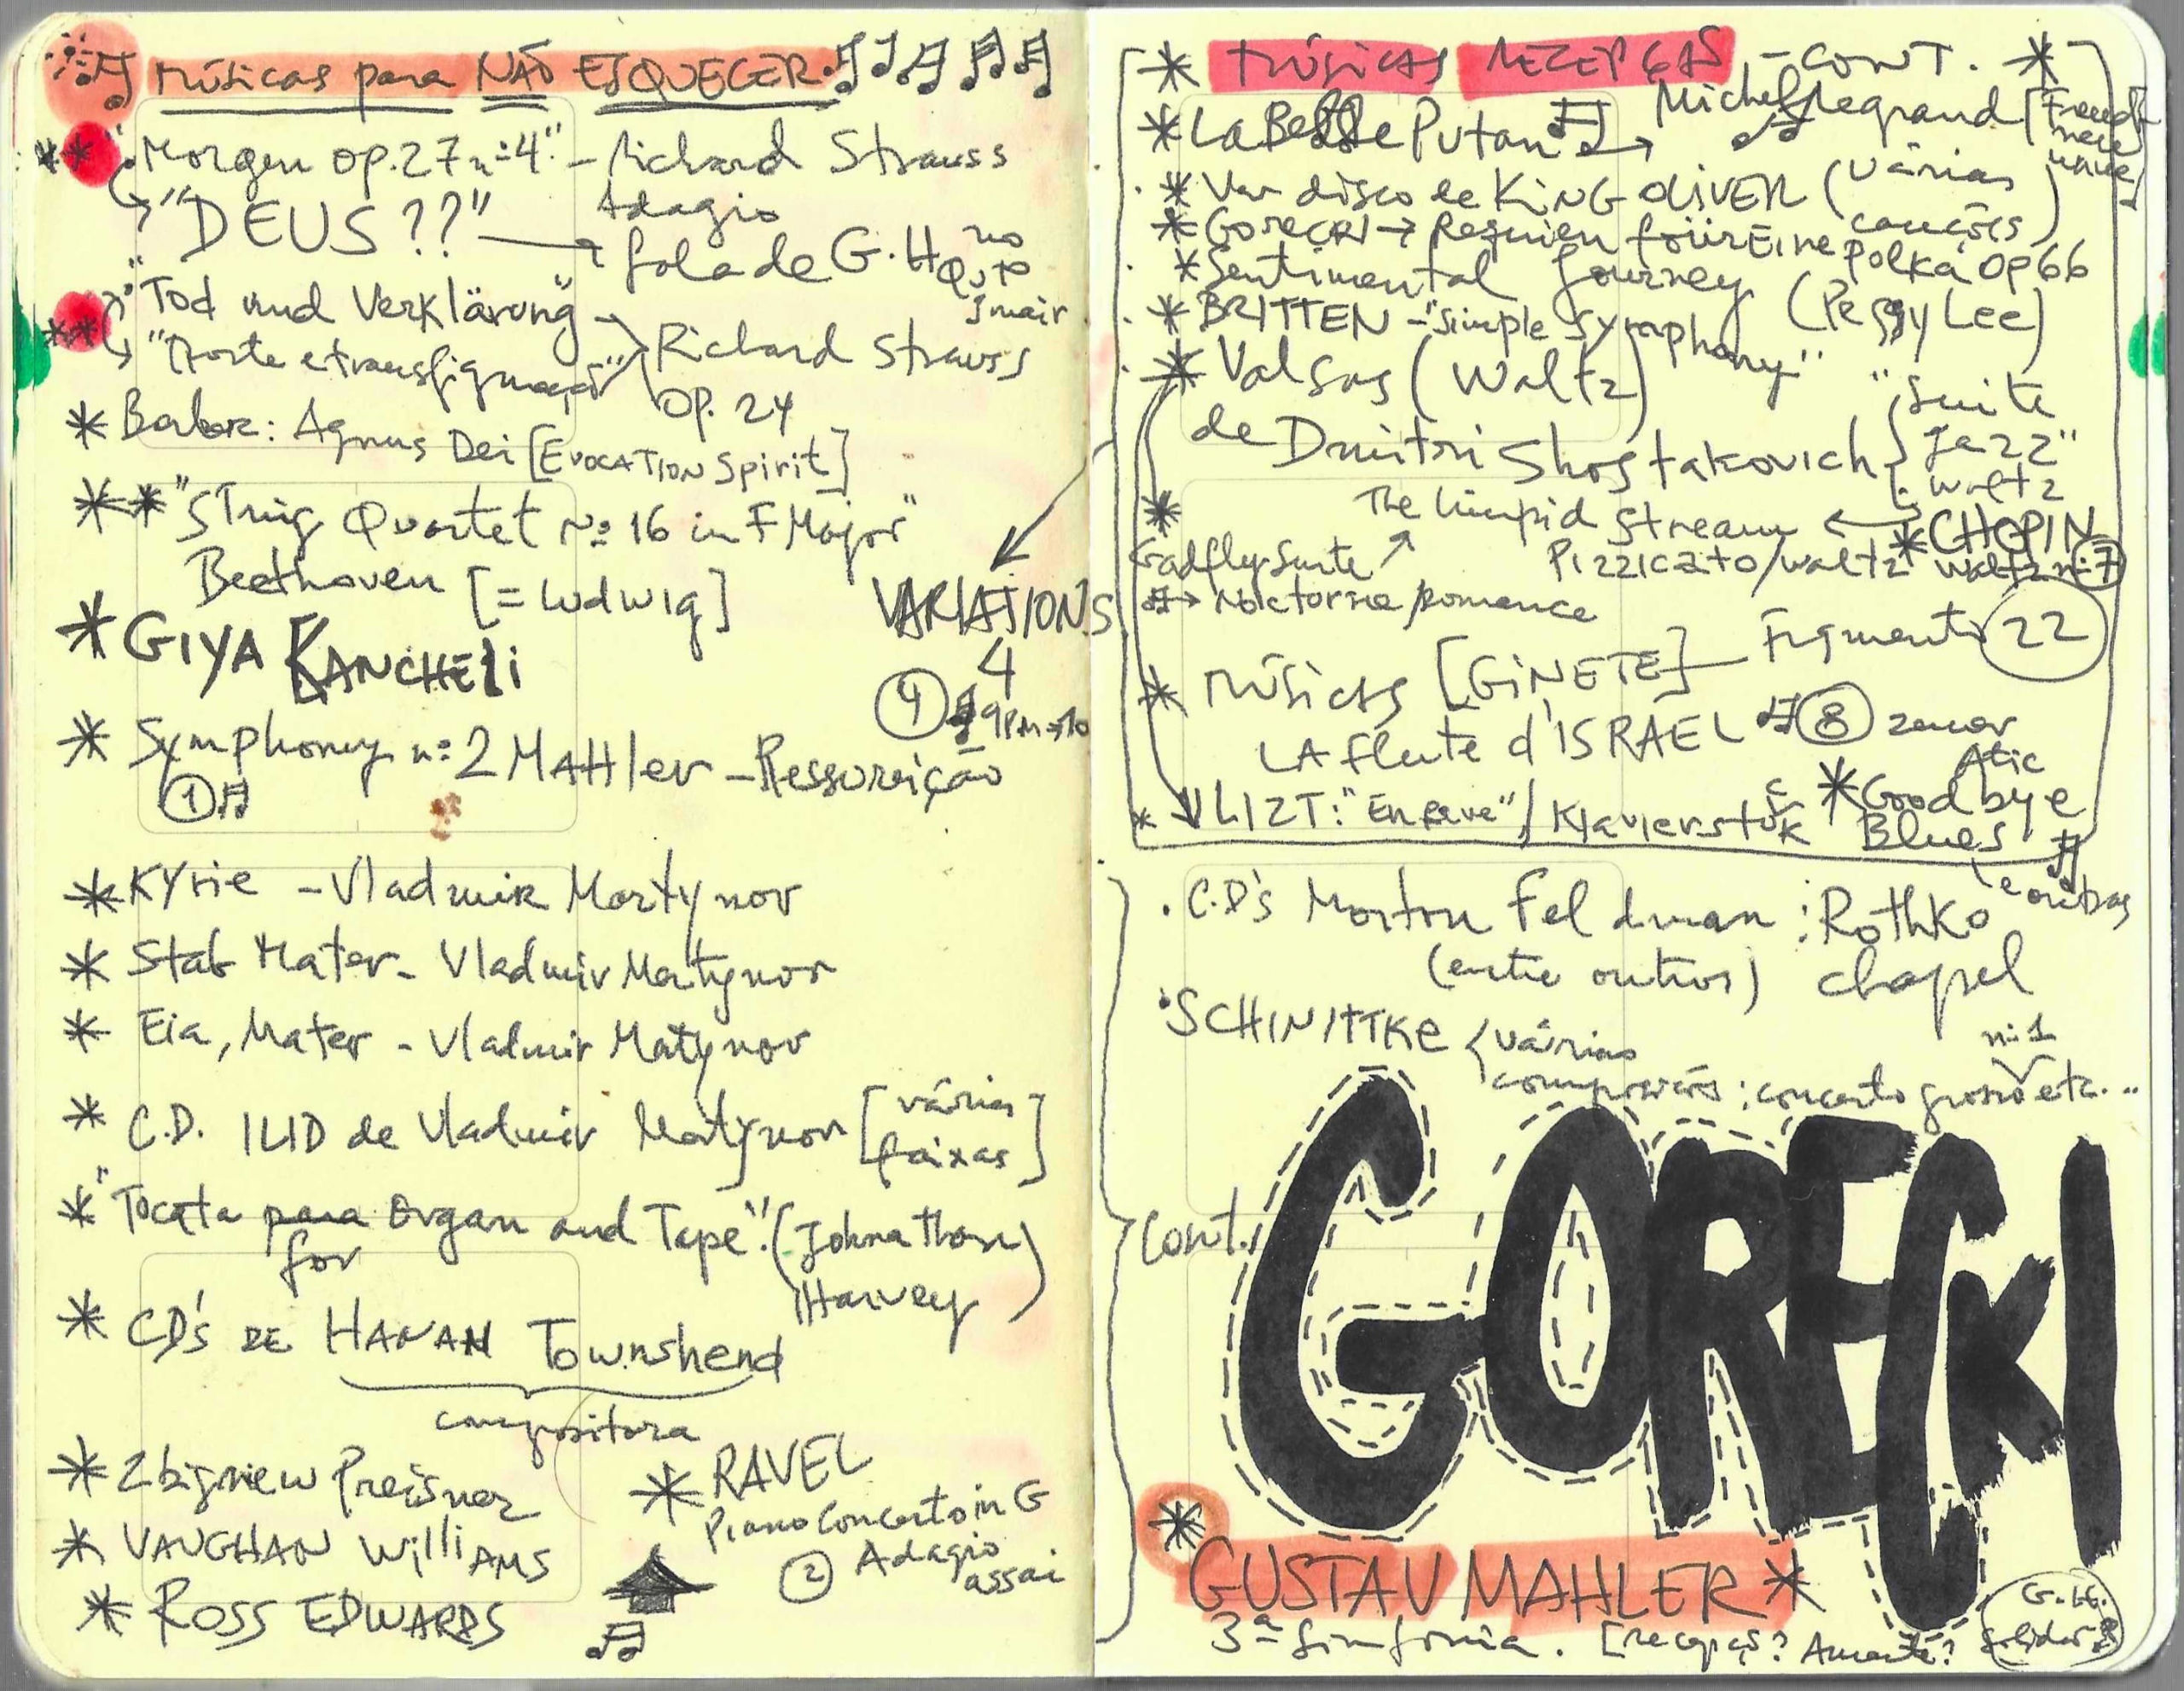 músicas para NÃO ESQUECER
"Morgen op. 27 nº 4" - Richard Strauss
"DEUS ??" Adagio
fala de G.H. no Qto
"Tod und Verklärung"
"Morte e transfiguração" Richard Strauss
op. 24
* Barber: Agnus Dei [EVOCATION Spirit]
** "String Quartet Nº 16 in F Major"
Beethoven [= Ludwig]
* GIYA KANCHELi
VARIATIONS
4
* Symphony nº 2 MAHler - Ressureição
1
* Kyrie - Vladmir Martynov
* Stab Mater - Vladmir Martynov
* Eia, Mater - Vladmir Matynov
* C.D. ILID de Vladmir Martynov [várias faixas]
* "Tocata para Organ and Tape" (Johnathan
for
Harvey)
* CD's DE HANAN Townshend
compositora
* Zbigniew Preisner
* VAUGHAN WilliAMS
* ROSS EDWARDS
* RAVEL
Piano Concerto in G
2 Adagio
assai
* MÚSICAS RECEPÇÃS - CONT. *
* La Belle Putan → Michel Legrand
* Um disco de KiNG OLiVER (várias canções)
* Gorecki → Requien füür Eine Polka Op 66
* Sentimental Journey (Peggy Lee)
* BRITTEN - "Simple Symphony"
* Valsas (Waltz)
de Dmitri Shostakovich
"Suite
Jazz"
Waltz
* The Limpid Stream ←
Pizzicato/waltz
* CHOPIN
Waltz nº 7
Gadfly Suite
→ Nocturne/Romance
* MÚSICAS [GiNETE] — Figment 22
LA flute d'ISRAEL 8
* LIZT: "En reve" / Klavierstück
* Good bye
Blues
e outras
. C.D's Morton Feldman : Rothko
(entre outros) chapel
. SCHINITTKE
várias
composições : concerto grosso nº 1 etc...
Cont.
GORECKI
* GUSTAV MAHLER *
3ª Sinfonia.
G.H.